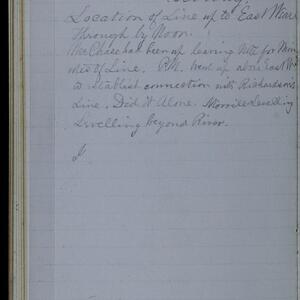 Location of Line up to East Wear
through by Noon.
Mr Chase has been up leaving Nate for
of Line. P.M. went up above East
to establish connection with Richardson's
Line. Did it Alone. Morrill Levelling
Levelling beyond River.
I